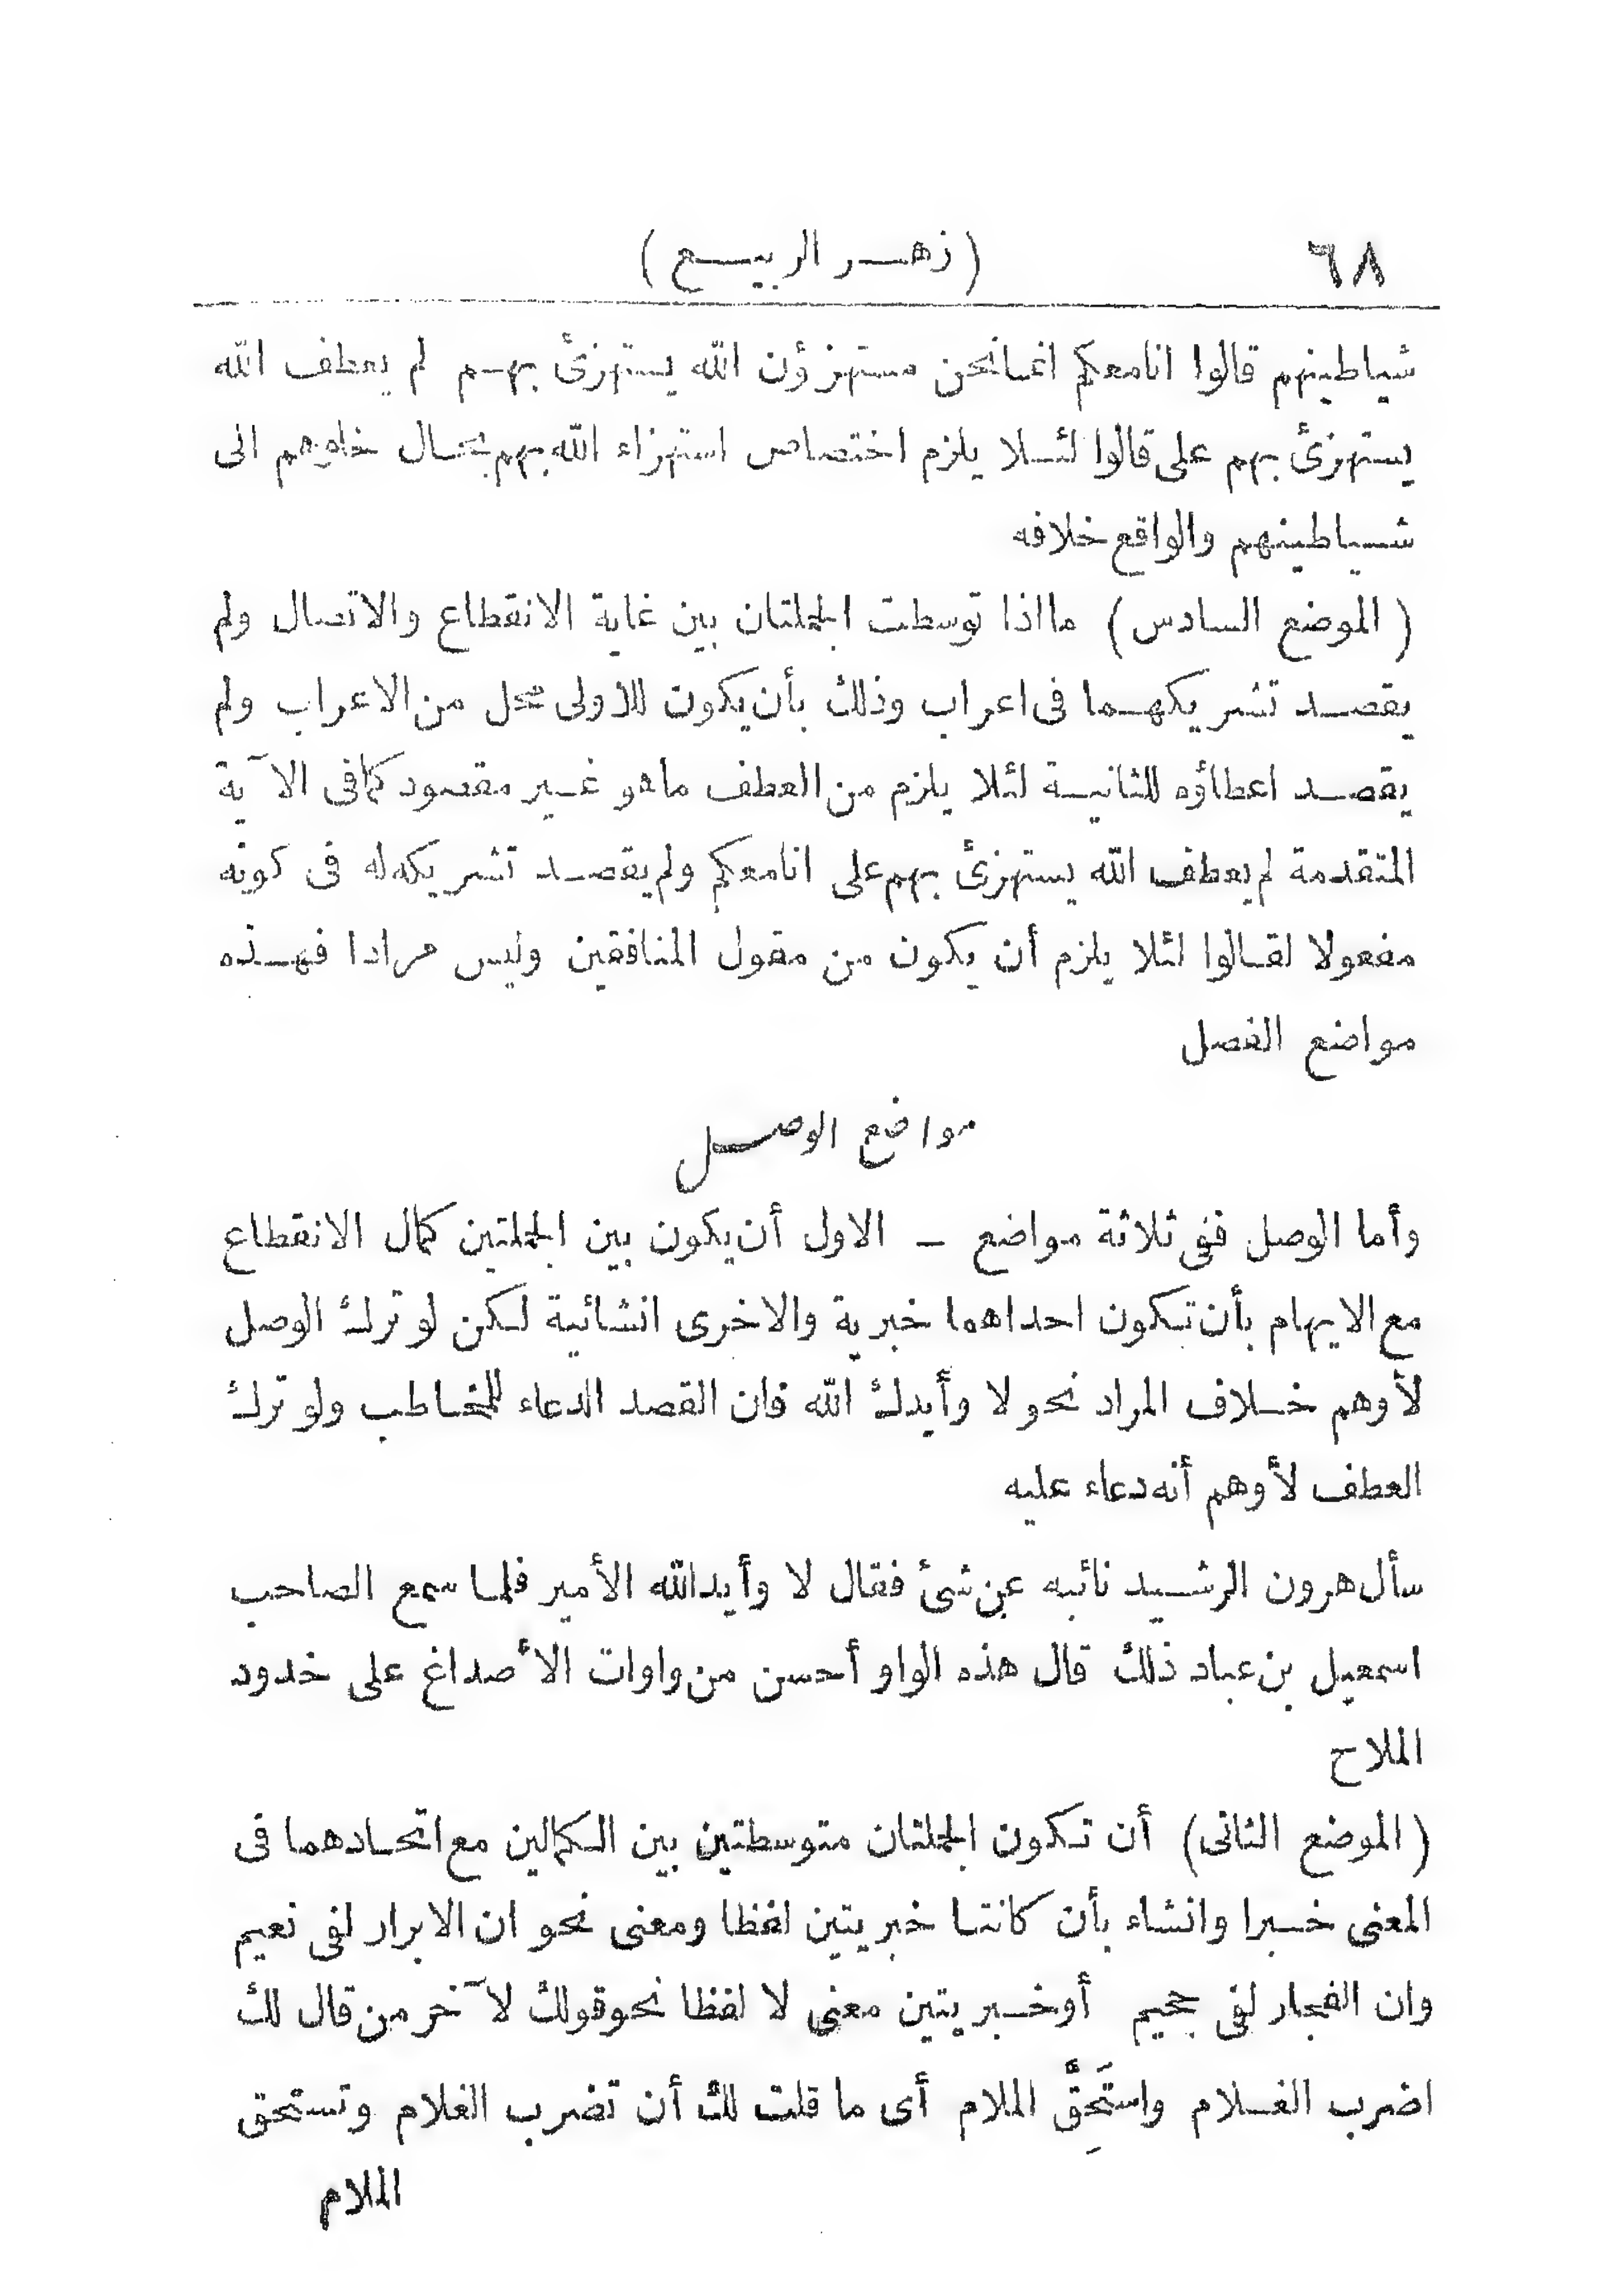 ٦٨ ( زهر الربيع )
شياطينهم قالوا انا معكم انما نحن مستهزؤن الله يستهزئ بهم لم يعطف الله
يستهزئ بهم على قالوا لئلا يلزم اختصاص استهزاء الله بهم بحال خلوهم الى
شياطينهم والواقع خلافه
( الموضع السادس ) ما اذا توسطت الجملتان بين غاية الانقطاع والاتصال ولم
يقصد تشريكهما فى اعراب وذلك بأن يكون للاولى محل من الاعراب ولم
يقصد اعطاؤه للثانية لئلا يلزم من العطف ما هو غير مقصود كما فى الآية
المتقدمة لم يعطف الله يستهزئ بهم على انا معكم ولم يقصد تشريكه له فى كونه
مفعولا لقالوا لئلا يلزم أن يكون من مقول المنافقين وليس مرادا فهذه
مواضع الفصل
مواضع الوصل
وأما الوصل ففى ثلاثة مواضع - الاول أن يكون بين الجملتين كمال الانقطاع
مع الايهام بأن تكون احداهما خبرية والاخرى انشائية لكن لو ترك الوصل
لأوهم خلاف المراد نحو لا وأيدك الله فان القصد الدعاء للمخاطب ولو ترك
العطف لأوهم أنه دعاء عليه
سأل هرون الرشيد نائبه عن شئ فقال لا وأيد الله الأمير فلما سمع الصاحب
اسمعيل بن عباد ذلك قال هذه الواو أحسن من واوات الأصداغ على خدود
الملاح
( الموضع الثانى ) أن تكون الجملتان متوسطتين بين الكمالين مع اتحادهما فى
المعنى خبرا وانشاء بأن كانتا خبريتين لفظا ومعنى نحو ان الابرار لفى نعيم
وان الفجار لفى جحيم أو خبريتين معنى لا لفظا نحو قولك لآخر من قال لك
اضرب الغلام واستَحِقَّ الملام أى ما قلت لك أن تضرب الغلام وتستحق
الملام